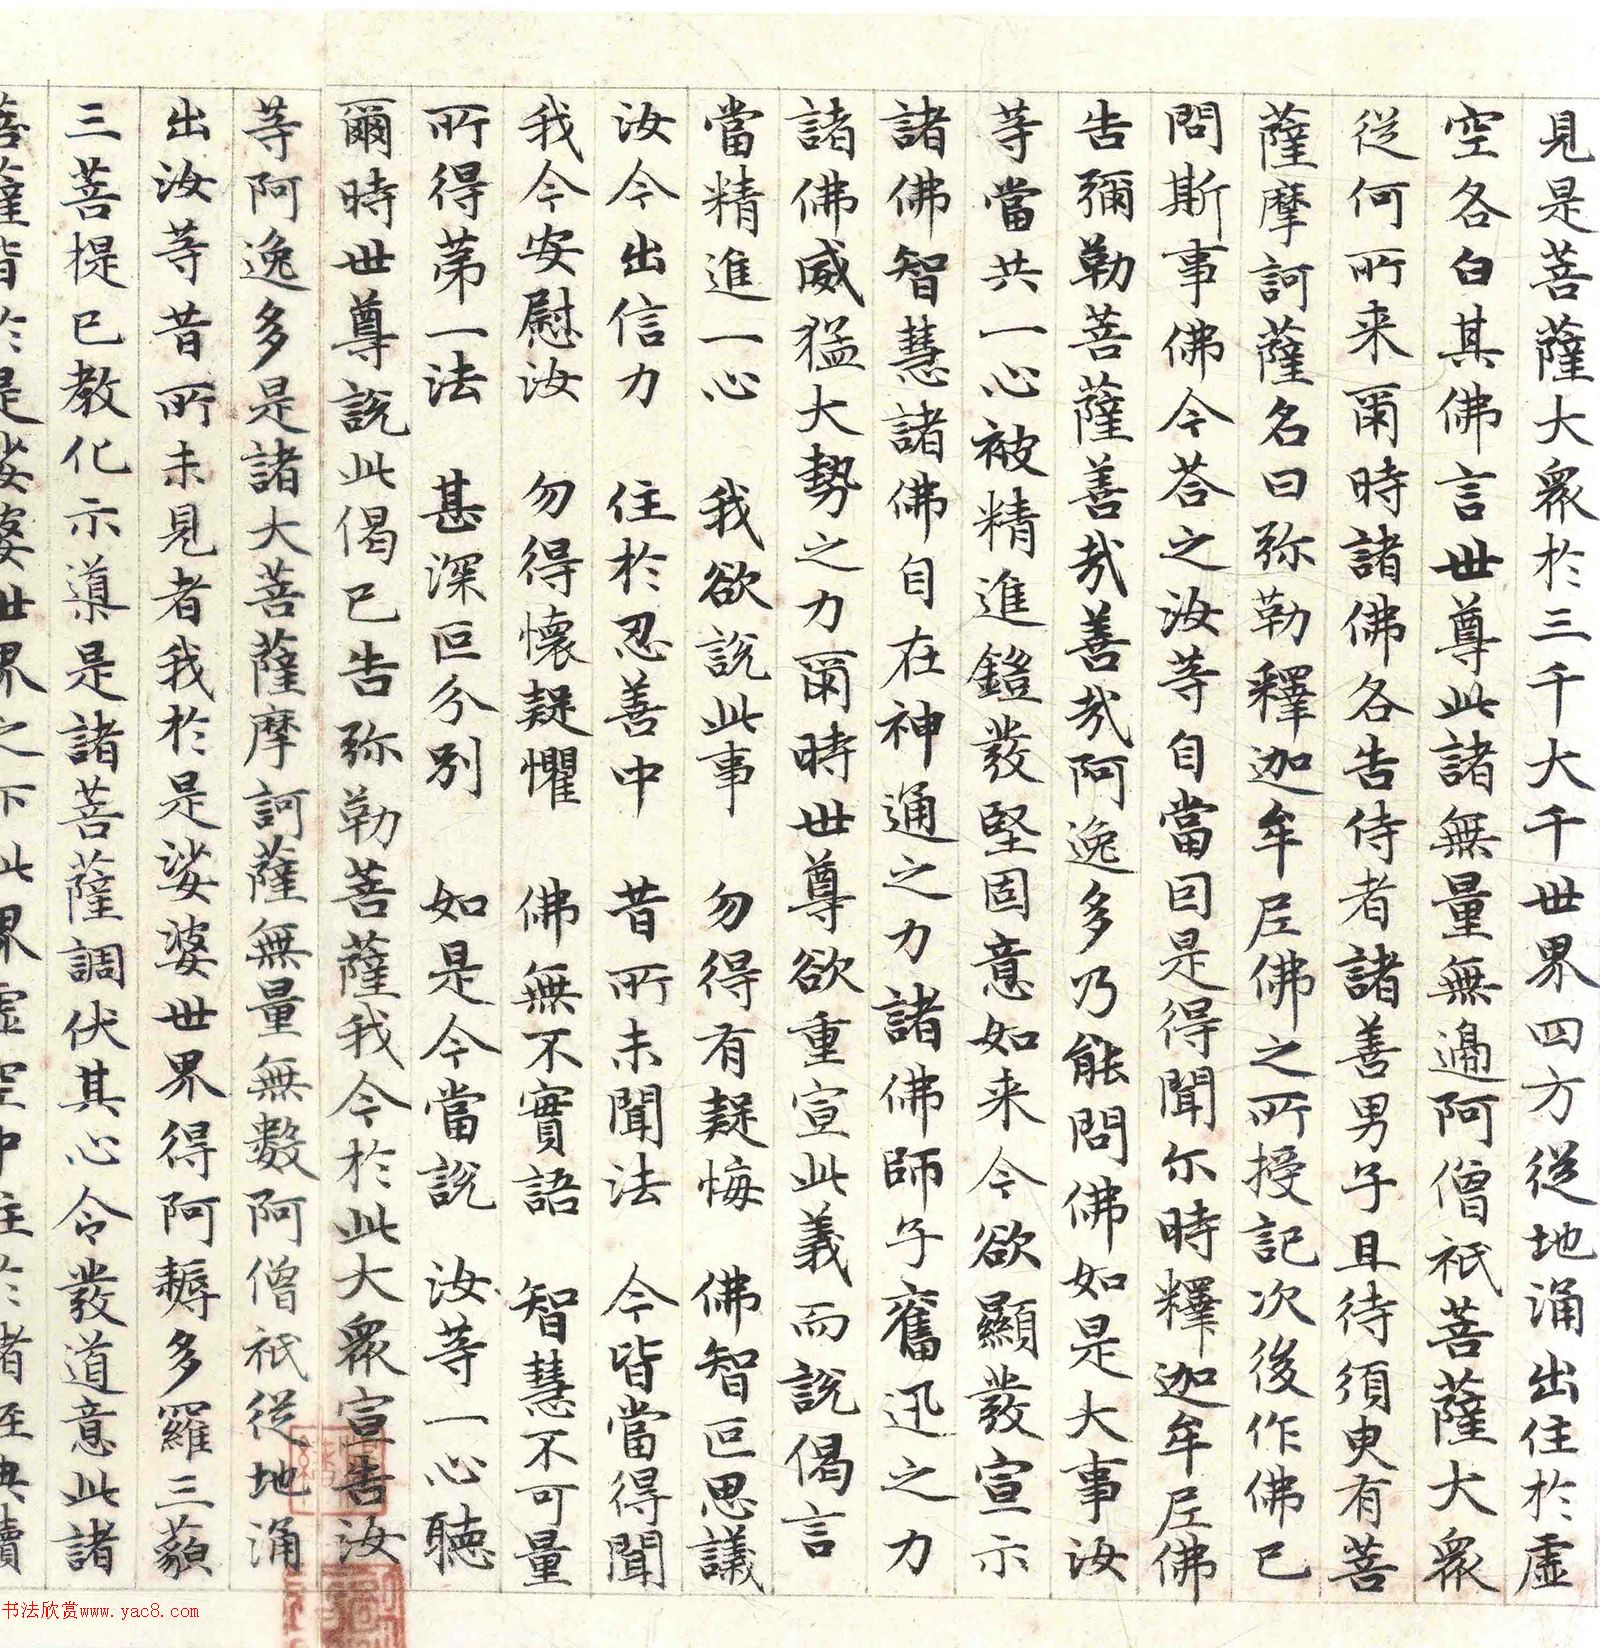 見是菩薩大衆於三千大千世界四方從地涌出住於虛
空各白其佛言世尊此諸無量無邊阿僧祇菩薩大衆
從何所来爾時諸佛各告侍者諸善男子且待須臾有菩
薩摩訶薩名曰弥勒釋迦牟尼佛之所授記次後作佛已
問斯事佛今荅之汝等自當因是得聞尒時釋迦牟尼佛
告彌勒菩薩善哉善哉阿逸多乃能問佛如是大事汝
等當共一心被精進鎧發堅固意如来今欲顯發宣示
諸佛智慧諸佛自在神通之力諸佛師子奮迅之力
諸佛威猛大勢之力爾時世尊欲重宣此義而說偈言
當精進一心 我欲說此事 勿得有疑悔 佛智叵思議
汝今出信力 住於忍善中 昔所未聞法 今皆當得聞
我今安慰汝 勿得懷疑懼 佛無不實語 智慧不可量
所得第一法 甚深叵分別 如是今當說 汝等一心聽
爾時世尊說此偈已告弥勒菩薩我今於此大衆宣告汝
等阿逸多是諸大菩薩摩訶薩無量無數阿僧祇從地涌
出汝等昔所未見者我於是娑婆世界得阿耨多羅三藐
三菩提已教化示導是諸菩薩調伏其心令發道意此諸
菩薩皆於是娑婆世界之下此界虛空中住於諸經典讀
书法欣赏www.yac8.com